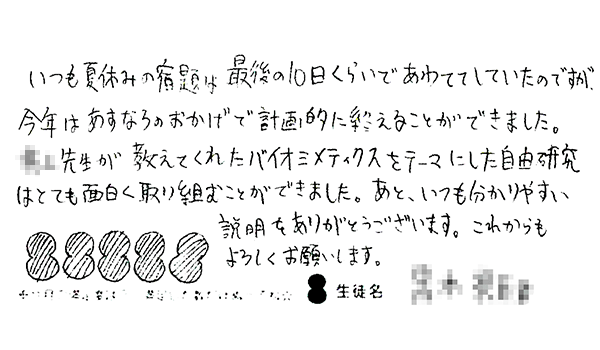 いつも夏休みの宿題は最後の10日くらいであわててしていたのですが、
今年はあすなろのおかげで計画的に終えることができました。
先生が教えてくれたバイオミメティクスをテーマにした自由研究
はとても面白く取り組むことができました。あと、いつも分かりやすい
説明をありがとうございます。これからも
よろしくお願いします。
生徒名